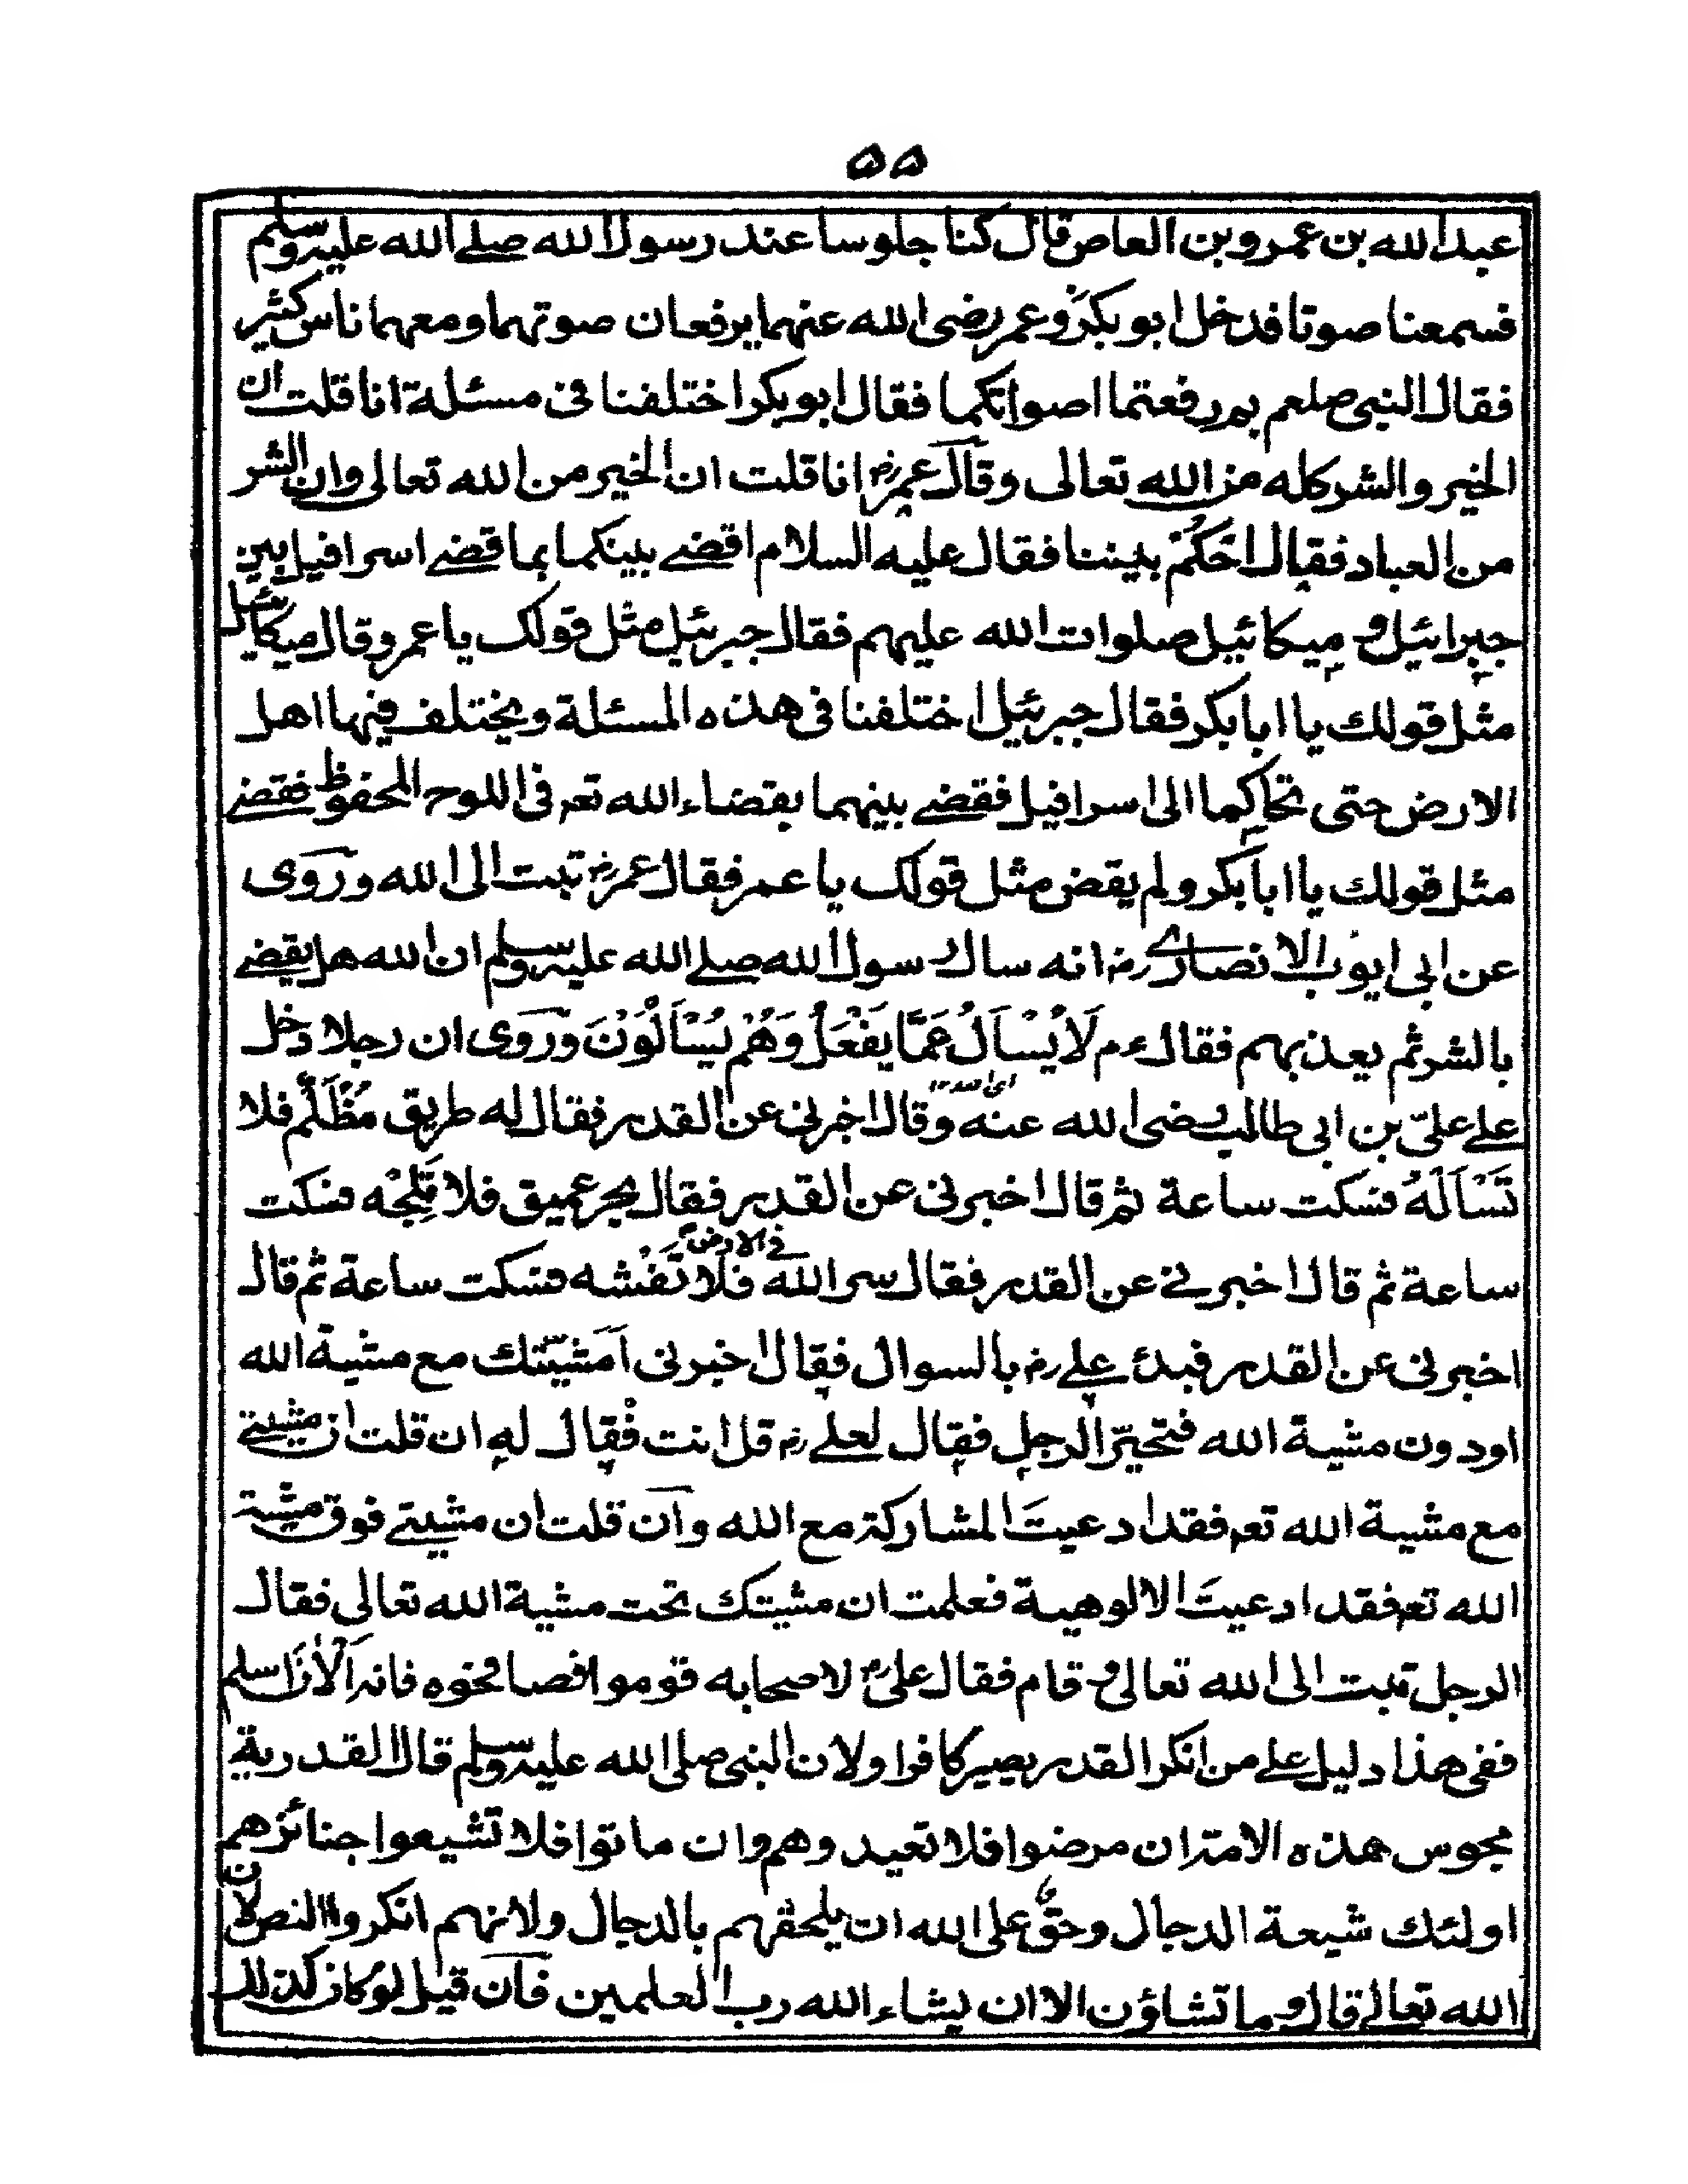 ٥٥
عبد الله بن عمرو بن العاص قال كنا جلوسا عند رسول الله صلے الله عليه وسلم
فسمعنا صوتا فدخل ابو بكر وعمر رضى الله عنهما يرفعان صوتهما ومعهما ناس كثير
فقال النبى صلعم بم رفعتما اصواتكما فقال ابو بكر اختلفنا فى مسئلة انا قلت ان
الخير والشر كله من الله تعالى وقال عمر رض انا قلت ان الخير من الله تعالى وان الشر
من العباد فقال احكم بيننا فقال عليه السلام اقضے بينكما بما قضے اسرافيل بين
جبرائيل و ميكائيل صلوات الله عليهم فقال جبرئيل مثل قولك يا عمر وقال ميكائيل
مثل قولك يا ابا بكر فقال جبرئيل اختلفنا فى هذه المسئلة ويختلف فيها اهل
الارض حتى تحاكما الى اسرافيل فقضے بينهما بقضاء الله تعه فى اللوح المحفوظ فقضے
مثل قولك يا ابا بكر ولم يقض مثل قولك يا عمر فقال عمر رض تبت الى الله وروى
عن ابى ايوب الانصارے رض انه سال رسول الله صلے الله عليه وسلم ان الله هل يقضے
بالشر ثم يعذبهم فقال ءم لَا يُسْاَلُ عَمَّا يَفْعَلُ وَهُمْ يُسْاَلُوْنَ وروى ان رجلا دخل
علے علىّ بن ابى طالب رضى الله عنه وقال اخبرنى عن القدر فقال له طريق مُظْلَمٌ فلا
تَسْاَلَهُ فسكت ساعة ثم قال اخبرنى عن القدر فقال بحر عميق فلا تَلِجْه فسكت
ساعة ثم قال اخبرنے عن القدر فقال سر الله فے الارض فلا تفشه فسكت ساعة ثم قال
اخبرنى عن القدر فبدئ علے رض بالسوال فقال اخبرنى اَمَشيّتك مع مشية الله
او دون مشية الله فتحيّر الرجل فقال لعلے رض قل انت فقال له ان قلت ان مشيتے
مع مشية الله تعه فقد ادعيتَ المشاركة مع الله وان قلت ان مشيتے فوق مشية
الله تعه فقد ادعيتَ الالوهية فعلمت ان مشيتك تحت مشية الله تعالى فقال
الرجل تبت الى الله تعالى و قام فقال على رض لاصحابه قوموا فصافحوه فانه اَلْاٰنَ اسلم
ففى هذا دليل علے من انكر القدر يصير كافرا ولان النبى صلى الله عليه وسلم قال القدرية
مجوس هذه الامة ان مرضوا فلا تعيدوهم وان ماتوا فلا تشيعوا جنائزهم
اولئك شيعة الدجال وحقٌّ على الله ان يلحقهم بالدجال ولانهم انكروا النص لان
الله تعالے قال وما تشاؤن الا ان يشاء الله رب العلمين فان قيل لو كان كذلك